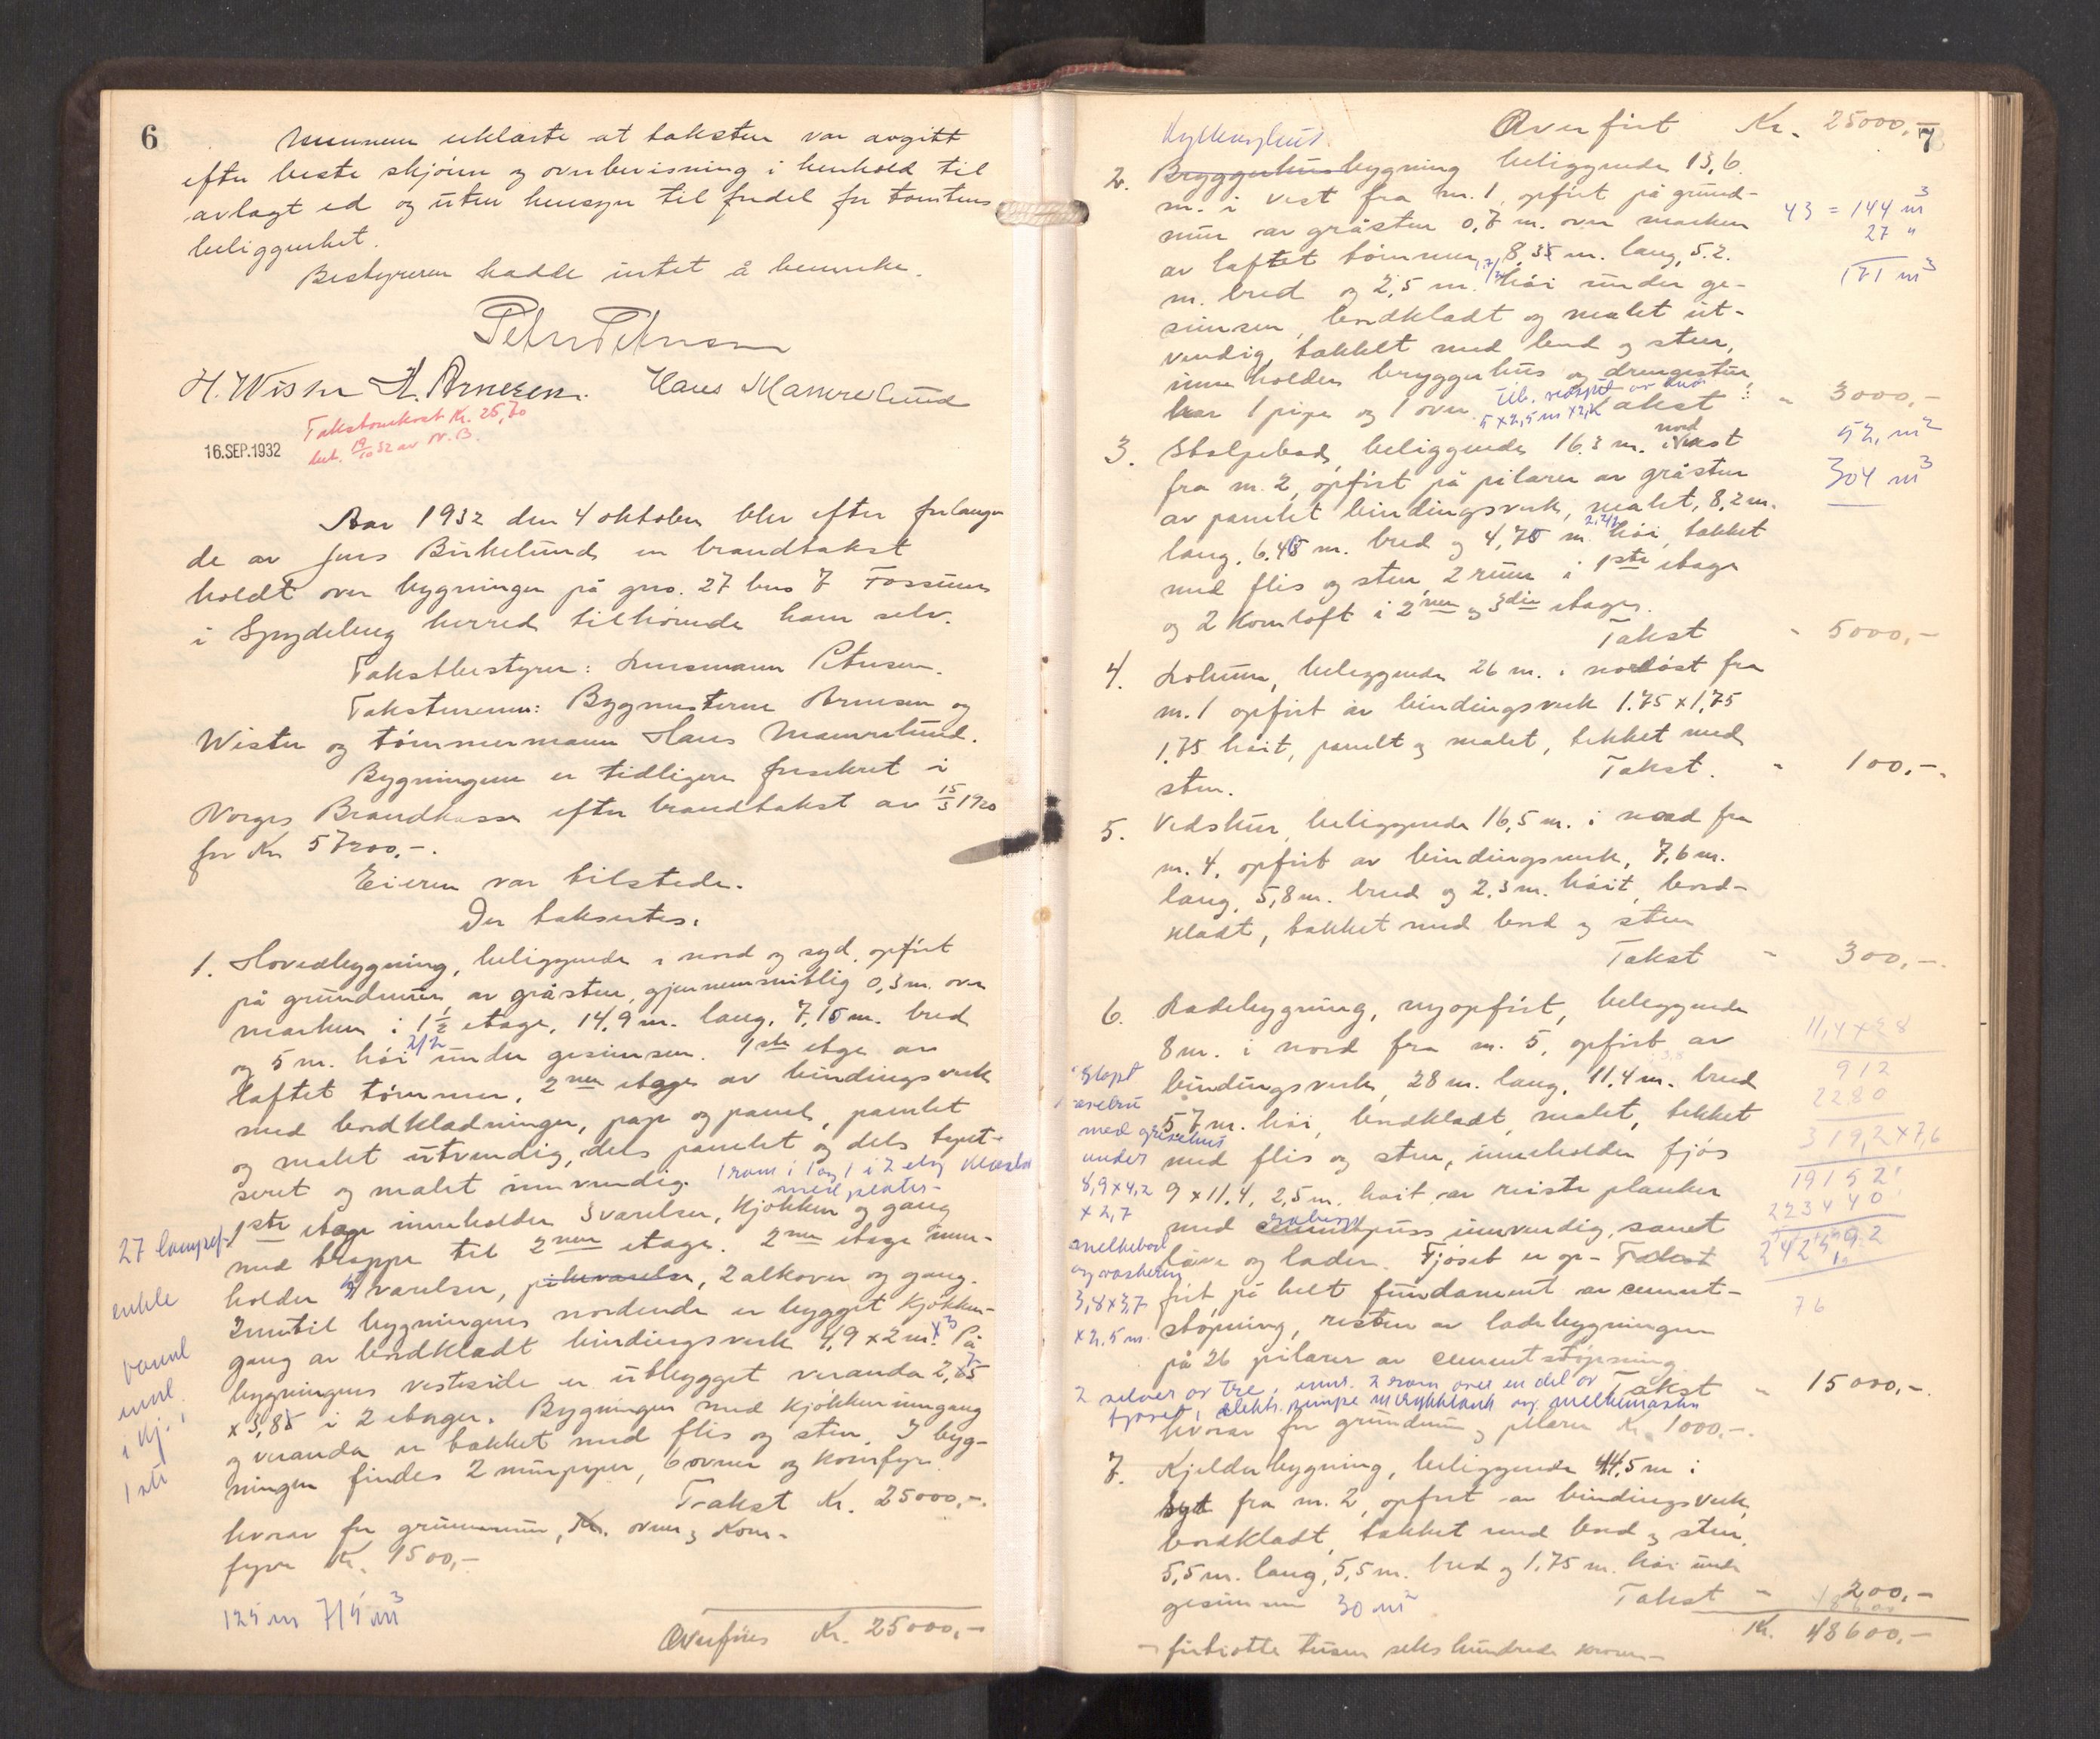 6
Mennene erklærte at taksten var avgitt
efter beste skjønn og overbevisning i henhold til
avlagt ed og uten hensyn til fordel for tomtens
beliggenhet.
Bestyreren hadde intet å bemerke.
Peter Petersen
H. Wister A. Arnesen. Hans Mamrelund
Takstomkost Kr. 25,70
bet. 19/10 32 av N.B.
16.SEP.1932
Aar 1932 den 4 oktober blev efter forlangen-
de av Jens Birkelund en brandtakst
holdt over bygninger på gno. 27 bno 7 Fossum
i Spydeberg herred tilhørende ham selv.
Takstbestyrer: Lensmann Petersen.
Takstmenn: Bygmesterne Arnesen og
Wister og tømmermann Hans Mamrelund.
Bygningene er tidligere forsikret i
Norges Brandkasse efter brandtakst av 15/3 1920
for Kr 57200,-.
Eieren var tilstede.
Der takseres.
1. Hovedbygning, beliggende i nord og syd, opført
på grundmur av gråsten, gjennemsnitlig 0,3 m. over
marken i 1 1/2 etage, 14,9 m. lang, 7,15 m. bred
og 5 m. høi 2/2 under gesimsen. 1ste etge av
laftet tømmer, 2nen etage av bindingsverk
med bordkledninger, pap og panel, panelet
og malet utvendig, dels panelet og dels tapet-
seret og malet innvendig. 1 rom i 1 og 1 i 2 etg
med plater.
1ste etage inneholder 3 værelser, kjøkken og gang
med trappe til 2nen etage. 2nen etage inne-
holder 4 værelser, pikeværelse, 2 alkover og gang.
Inntil bygningens nordende er bygget kjøkken-
gang av bordkledt bindingsverk 4,9 x 2 m. x 3 På
bygningens vestside er utbygget veranda 2,75
x 3,85 i 2 etager. Bygningen med kjøkkeninngang
og veranda er tækket med flis og sten. I byg-
ningen findes 2 murpiper, 6 ovner og komfyr.
Takst Kr. 25000,-.
hvorav for grunnmur, Kr. ovner og kom-
fyre Kr. 1500,-
27 lampep.
enkle
vann
innl.
i kj. i
1 ste
125 m 715 m3
Overføres Kr. 25000,-
7
Overført Kr. 25000,-
Kyllinghus.
2. Bryggerhusbygning beliggende 13,6
m. i vest fra nr. 1, opført på grund-
mur av gråsten 0,7 m. over marken
av laftet tømmer, 8,35 m. lang, 5.2.
m. bred og 2,5 m. høi under ge-
simsen, bordkledt og malet ut-
vendig, tækket med bord og sten,
inneholder bryggerhus og drengestue,
har 1 pipe og 1 ovn. Takst : " 3000,-
5 x 2,5 m x 2,2
43 = 144 m3
27 "
171 m3
3. Stolpebod, beliggende 16.3 m. i nord vest
fra nr. 2, opført på pilarer av gråsten
av panelet bindingsverk, malet, 8,2 m.
lang, 6.45 m. bred og 4,75 m høi, tækket
med flis og sten 2 rum i 1ste etage
og 2 kornloft i 2nen og 3die etager.
Takst " 5000,-
52, m2
304 m3
4. Lokum, beliggende 26 m. i nordøst fra
nr. 1 opført av bindingsverk 1.75 x 1,75
1.75 høit, panelt og malet, tekket med
sten. Takst. " 100,-.
5. Vedskur, beliggende 16,5 m. i nord fra
nr. 4, opført av bindingsverk, 7,6 m.
lang, 5,8 m. bred og 2.3 m. høit, bord-
kledt, tækket med bord og sten
Takst " 300,-.
6. Ladebygning, nyopført, beliggende
8 m. i nord fra nr. 5, opført av
bindingsverk, 28 m. lang, 11.4 m. bred
5.7 m. høi, bordkledt, malet, tekket
med flis og sten, inneholder fjøs
9 x 11.4, 2,5 m. høit av reiste planker
med cementpuss innvendig, samt
låve og lader. Fjøset er op- Takst
ført på helt fundament av cement-
støpning, resten av ladebygningen
på 26 pilarer av cementstøpning
Takst " 15000,-.
hvorav for grundmur og pilarer Kr. 1000,-.
Støpt
med grisehus
under
8,9 x 4,2
x 2,7
melkebod
og vaskerum
3,8 x 3,7
x 2.5 m.
2 siloer av tre, innr. 2 rom over en del av
fjøset, elektr. pumpe m trykktank og melkemaskin
11,4 x 28
912
2280
319,2 x 7,6
19152
223440
2425,92
76
7. Kjelderbygning, beliggende 44,5 m i
syd fra nr. 2, opført av bindingsverk
bordkledt, tækket med bord og sten.
5,5 m. lang, 5,5 m. bred og 1.75 m. høi under
gesimsen 30 m2 Takst " 200,-
Kr. 48600,-
- førtiotte tusen seks hundrede kroner -